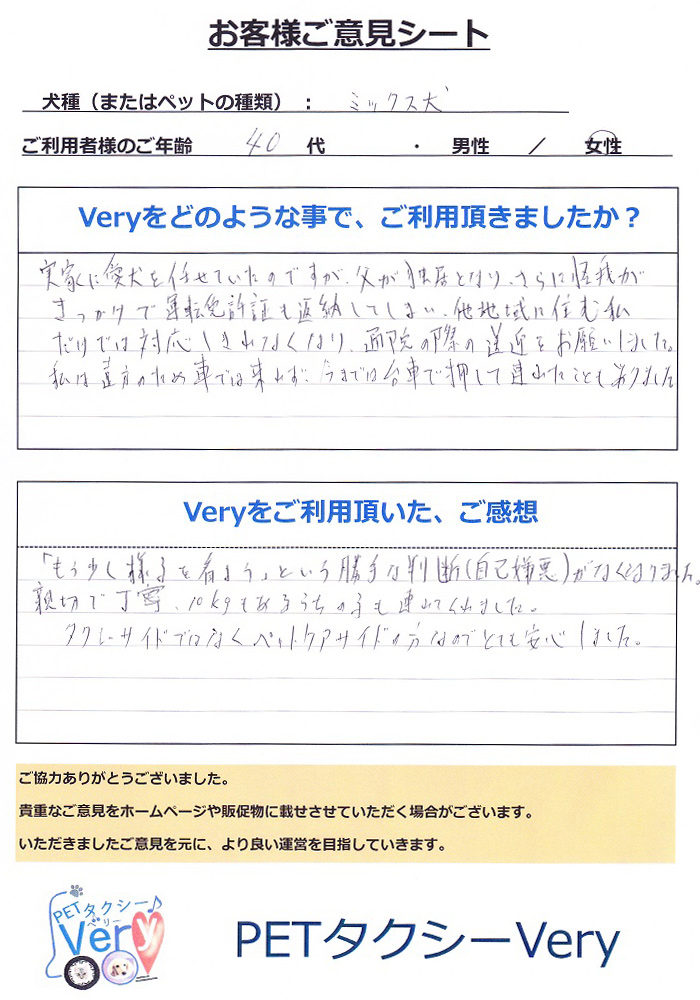 お客様ご意見シート
犬種（またはペットの種類）： ミックス犬
ご利用者様のご年齢 40 代 ・ 男性 ／ 女性
Veryをどのような事で、ご利用頂きましたか？
実家に愛犬を任せていたのですが、父が独居となり、さらに怪我が
きっかけで運転免許証も返納してしまい、他地域に住む私
だけでは対応しきれなくなり、通院の際の送迎をお願いしました。
私は遠方のため車では来れず、今までは台車で押して連れたこともありました
Veryをご利用頂いた、ご感想
「もう少し様子を看よう」という勝手な判断(自己嫌悪)がなくなりました。
親切で丁寧、10kgもあるうちの子も連れてくれました。
タクシーサイドではなくペットケアサイドの方なのでとても安心しました。
ご協力ありがとうございました。
貴重なご意見をホームページや販促物に載せさせていただく場合がございます。
いただきましたご意見を元に、より良い運営を目指していきます。
PETタクシー♪
ベリー
Very
PETタクシーVery